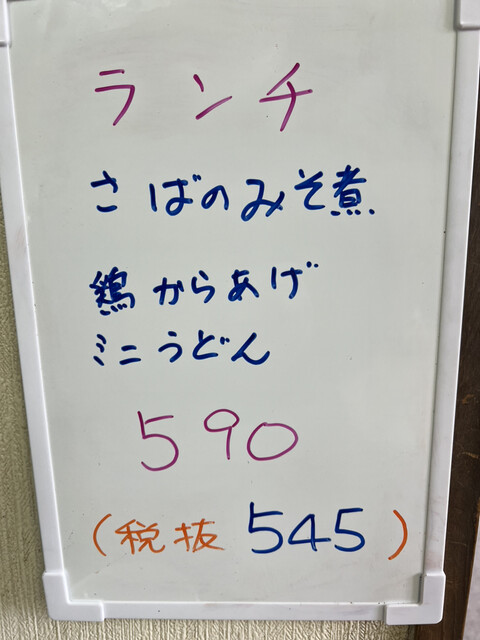 ランチ
さばのみそ煮
鶏からあげ
ミニうどん
590
(税抜 545)